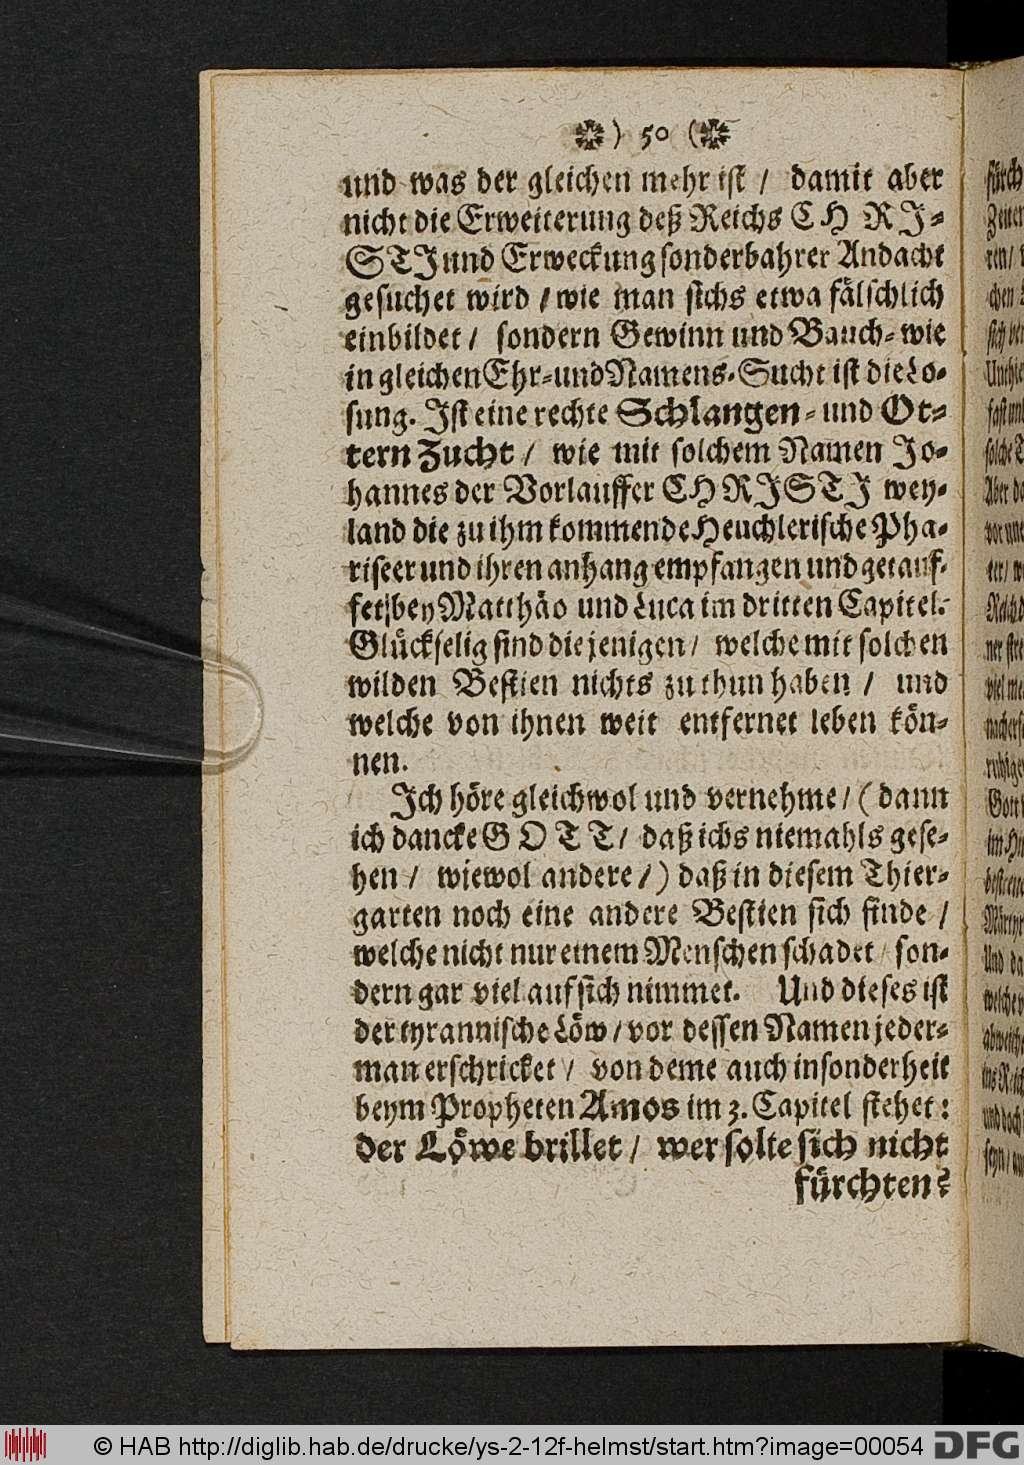 ❋) 50 (❋
und was der gleichen mehr ist / damit aber
nicht die Erweiterung deß Reichs CHRI-
STI und Erweckung sonderbahrer Andacht
gesuchet wird / wie man sichs etwa fälschlich
einbildet / sondern Gewinn und Bauch- wie
in gleichen Ehr- und Namens-Sucht ist die Lo-
sung. Ist eine rechte Schlangen- und Ot-
tern Zucht / wie mit solchem Namen Jo-
hannes der Vorlauffer CHRISTI wey-
land die zu ihm kommende Heuchlerische Pha-
riseer und ihren anhang empfangen und getauf-
fet / bey Matthäo und Luca im dritten Capitel.
Glückselig sind die jenigen / welche mit solchen
wilden Bestien nichts zu thun haben / und
welche von ihnen weit entfernet leben kön-
nen.
Ich höre gleichwol und vernehme / (dann
ich dancke GOTT / daß ichs niemahls gese-
hen / wiewol andere /) daß in diesem Thier-
garten noch eine andere Bestien sich finde /
welche nicht nur einem Menschen schadet / son-
dern gar viel auf sich nimmet. Und dieses ist
der tyrannische Löw / vor dessen Namen jeder-
man erschricket / von deme auch insonderheit
beym Propheten Amos im 3. Capitel stehet:
der Löwe brillet / wer solte sich nicht
fürchten?
© HAB http://diglib.hab.de/drucke/ys-2-12f-helmst/start.htm?image=00054
DFG